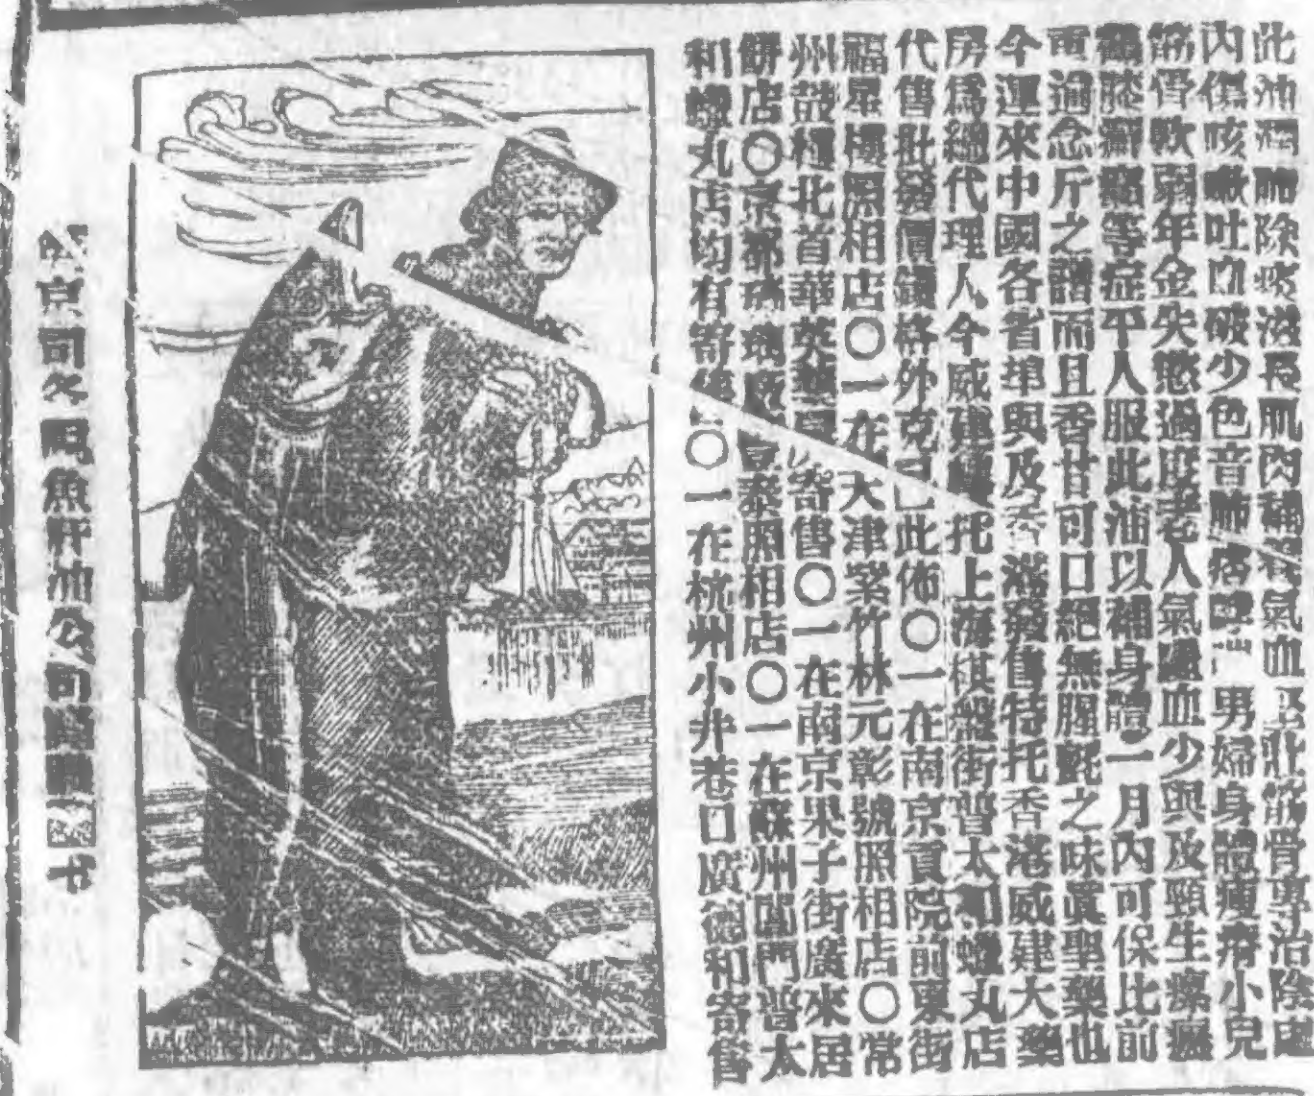 此油潤肺除痰滋長肌肉補養氣血堅壯筋骨專治陰虛
內傷咳嗽吐血破少色音肺癆男婦身體瘦瘠小兒
筋骨軟弱年金失慾過度老人氣虛血少與及頸生瘰癧
鶴膝癬癩等症平人服此油以補身體一月內可保比前
重過念斤之譜而且香甘可口絕無腥氈之味眞聖藥也
今運來中國各省埠與及香港發售特托香港威建大藥
房爲總代理人今威建托上海棋盤街普太和蠟丸店
代售批發價錢格外克己此佈〇一在南京貢院前東街
福星樓照相店〇一在天津紫竹林元彰號照相店〇常
州鼓樓北首華英寄售〇一在南京果子街廣來居
餅店〇京都琉璃廠泰照相店〇一在蘇州閶門普太
和蠟丸店均有寄售〇一在杭州小井巷口廣德和寄售
京司各脫魚肝油公司